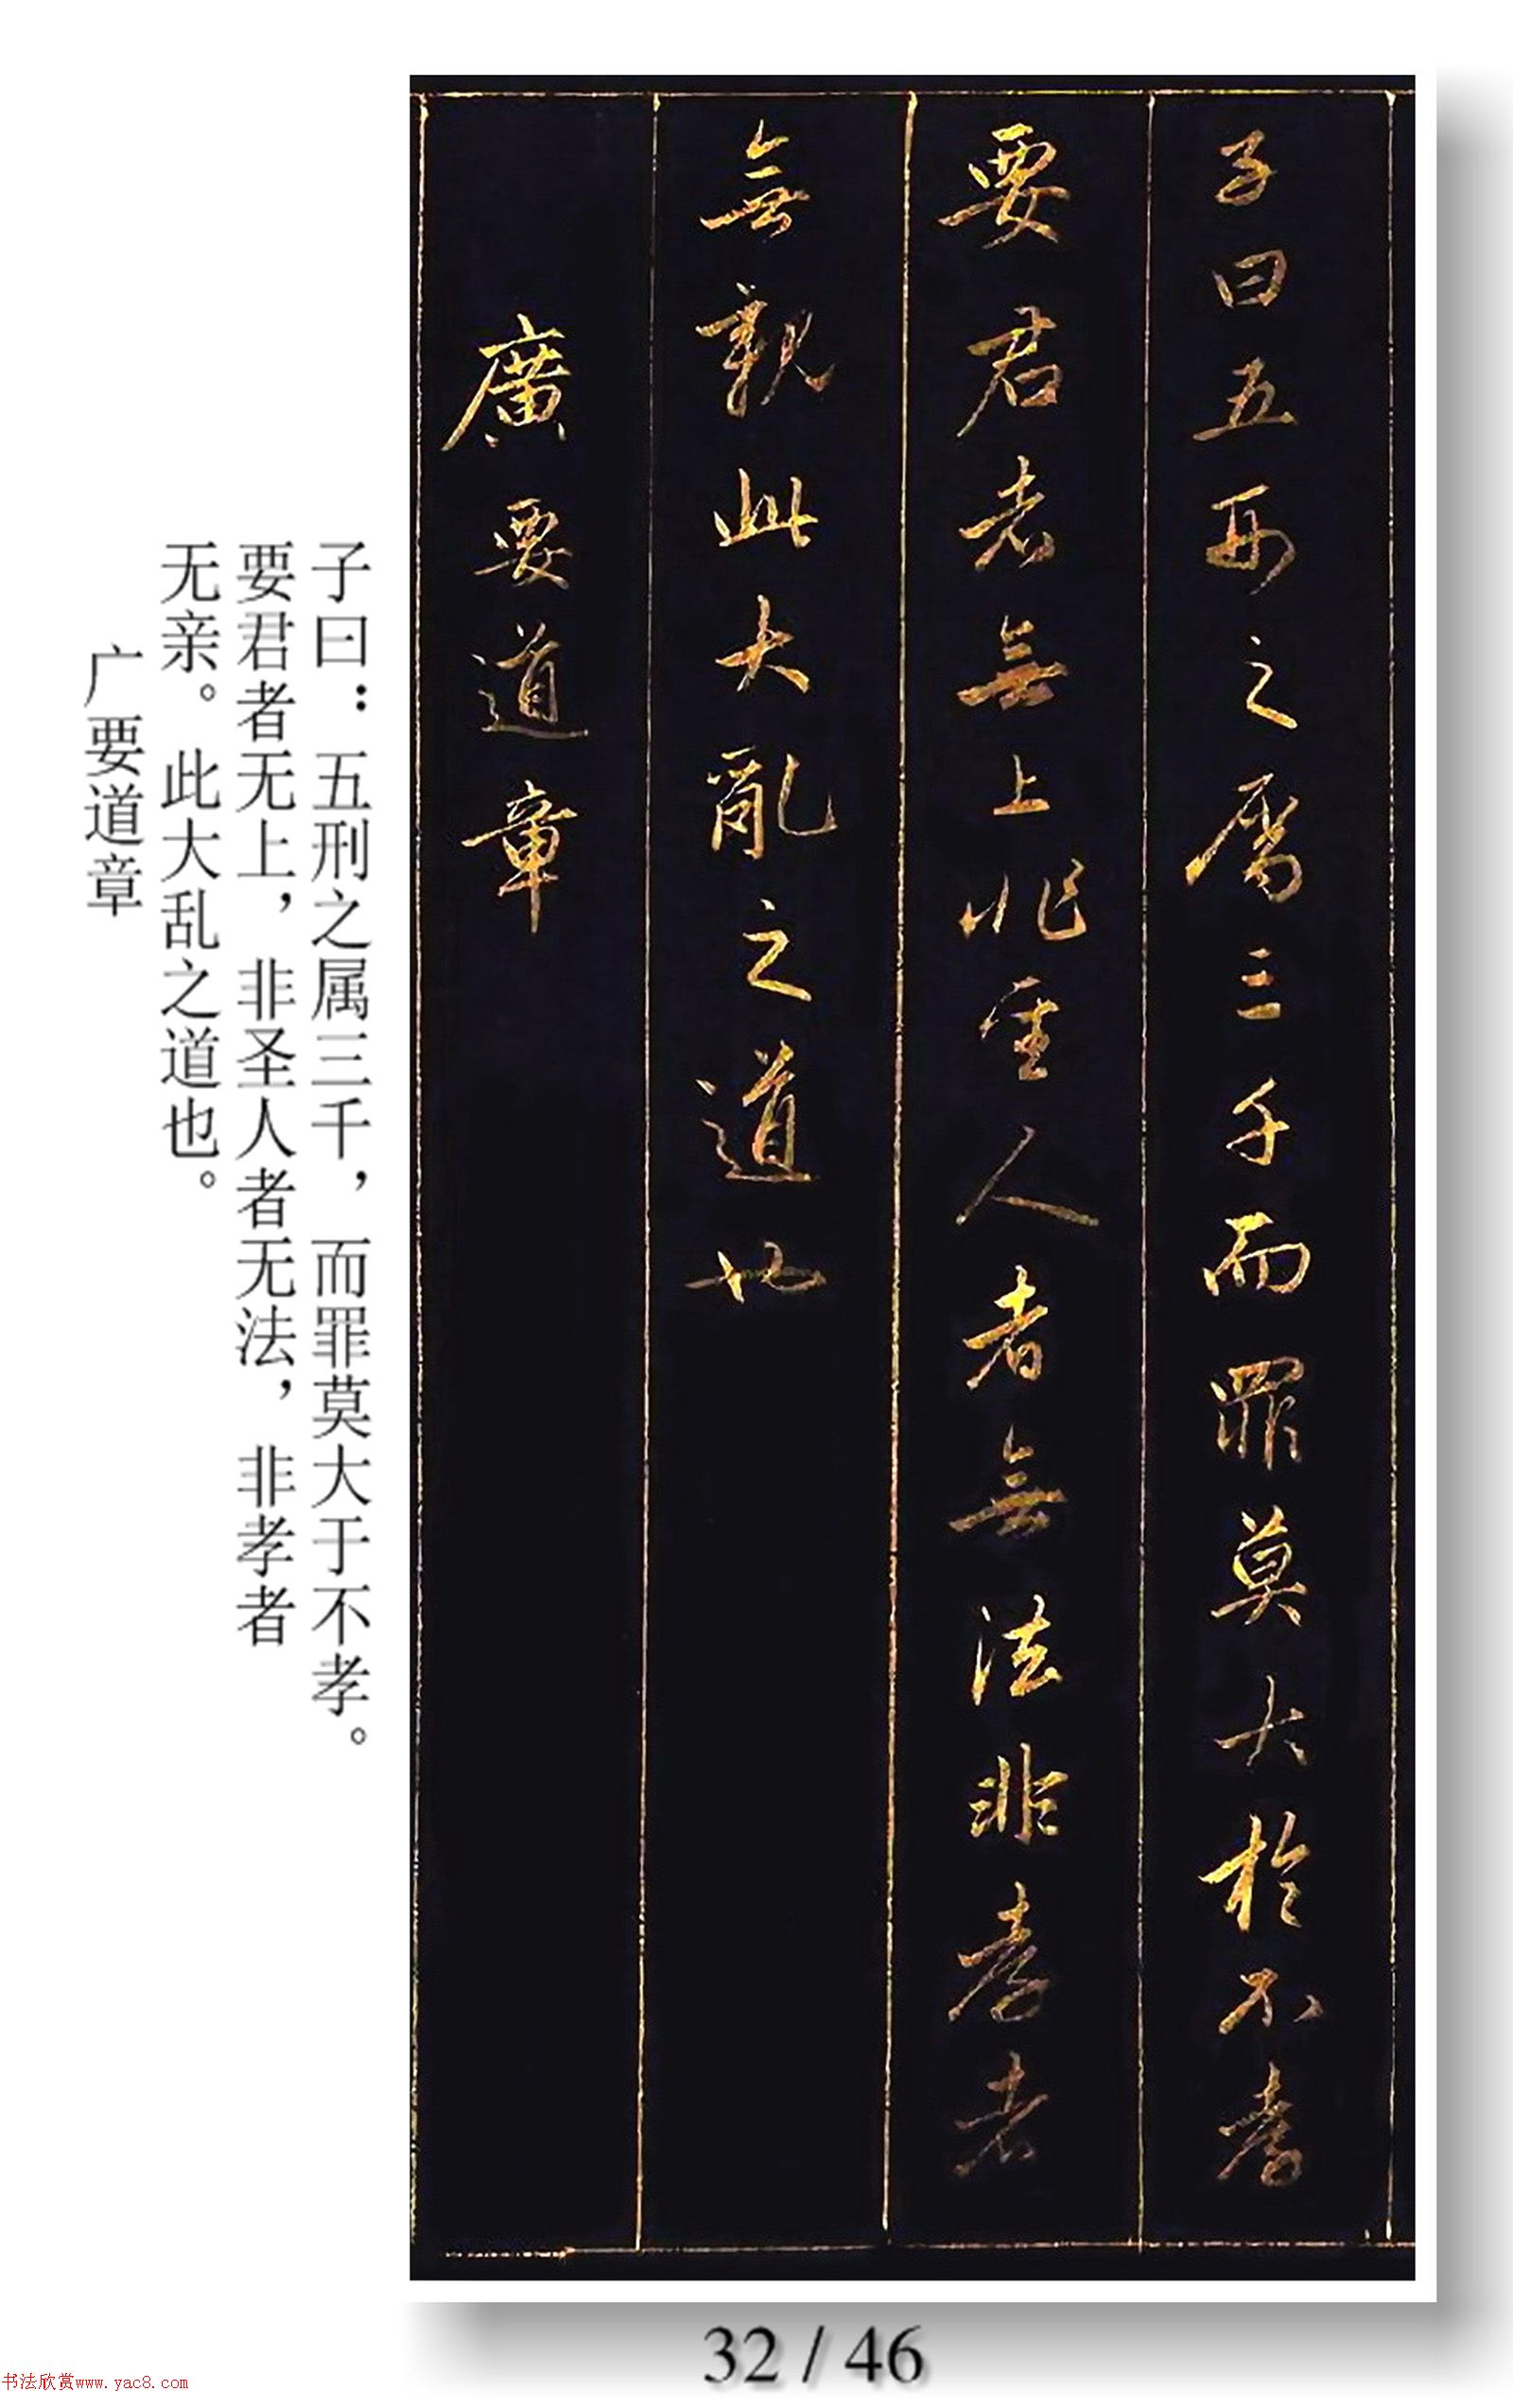 子曰五刑之屬三千而罪莫大於不孝
要君者無上非聖人者無法非孝者
無親此大亂之道也
廣要道章
子曰：五刑之属三千，而罪莫大于不孝。
要君者无上，非圣人者无法，非孝者
无亲。此大乱之道也。
广要道章
32 / 46
书法欣赏www.yac8.com